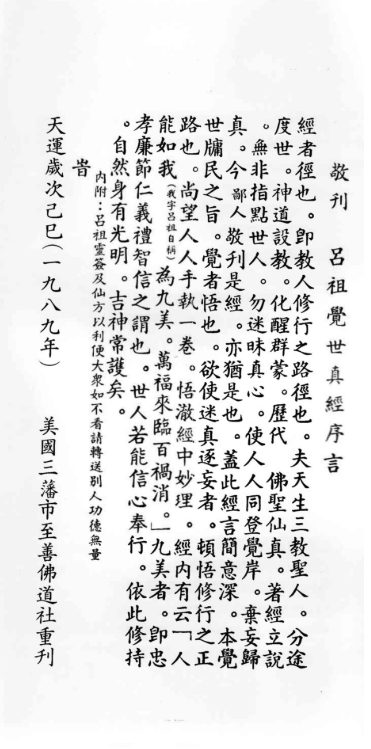 敬刊　呂祖覺世真經序言
經者徑也。即教人修行之路徑也。夫天生三教聖人。分途
度世。神道設教。化醒群蒙。歷代　佛聖仙真。著經立說
。無非指點世人。勿迷昧真心。使人人同登覺岸。棄妄歸
真。今鄙人敬刊是經。亦猶是也。蓋此經言簡意深。本覺
世牖民之旨。覺者悟也。欲使迷真逐妄者。頓悟修行之正
路也。尚望人人手執一卷。悟澈經中妙理。經內有云「人
能如我（我字呂祖自稱）為九美。萬福來臨百禍消。」九美者。即忠
孝廉節仁義禮智信之謂也。世人若能信心奉行。依此修持
。自然身有光明。吉神常護矣。
內附：呂祖靈簽及仙方以利便大衆如不看請轉送別人功德無量
旹
天運歲次己巳（一九八九年）　美國三藩市至善佛道社重刊